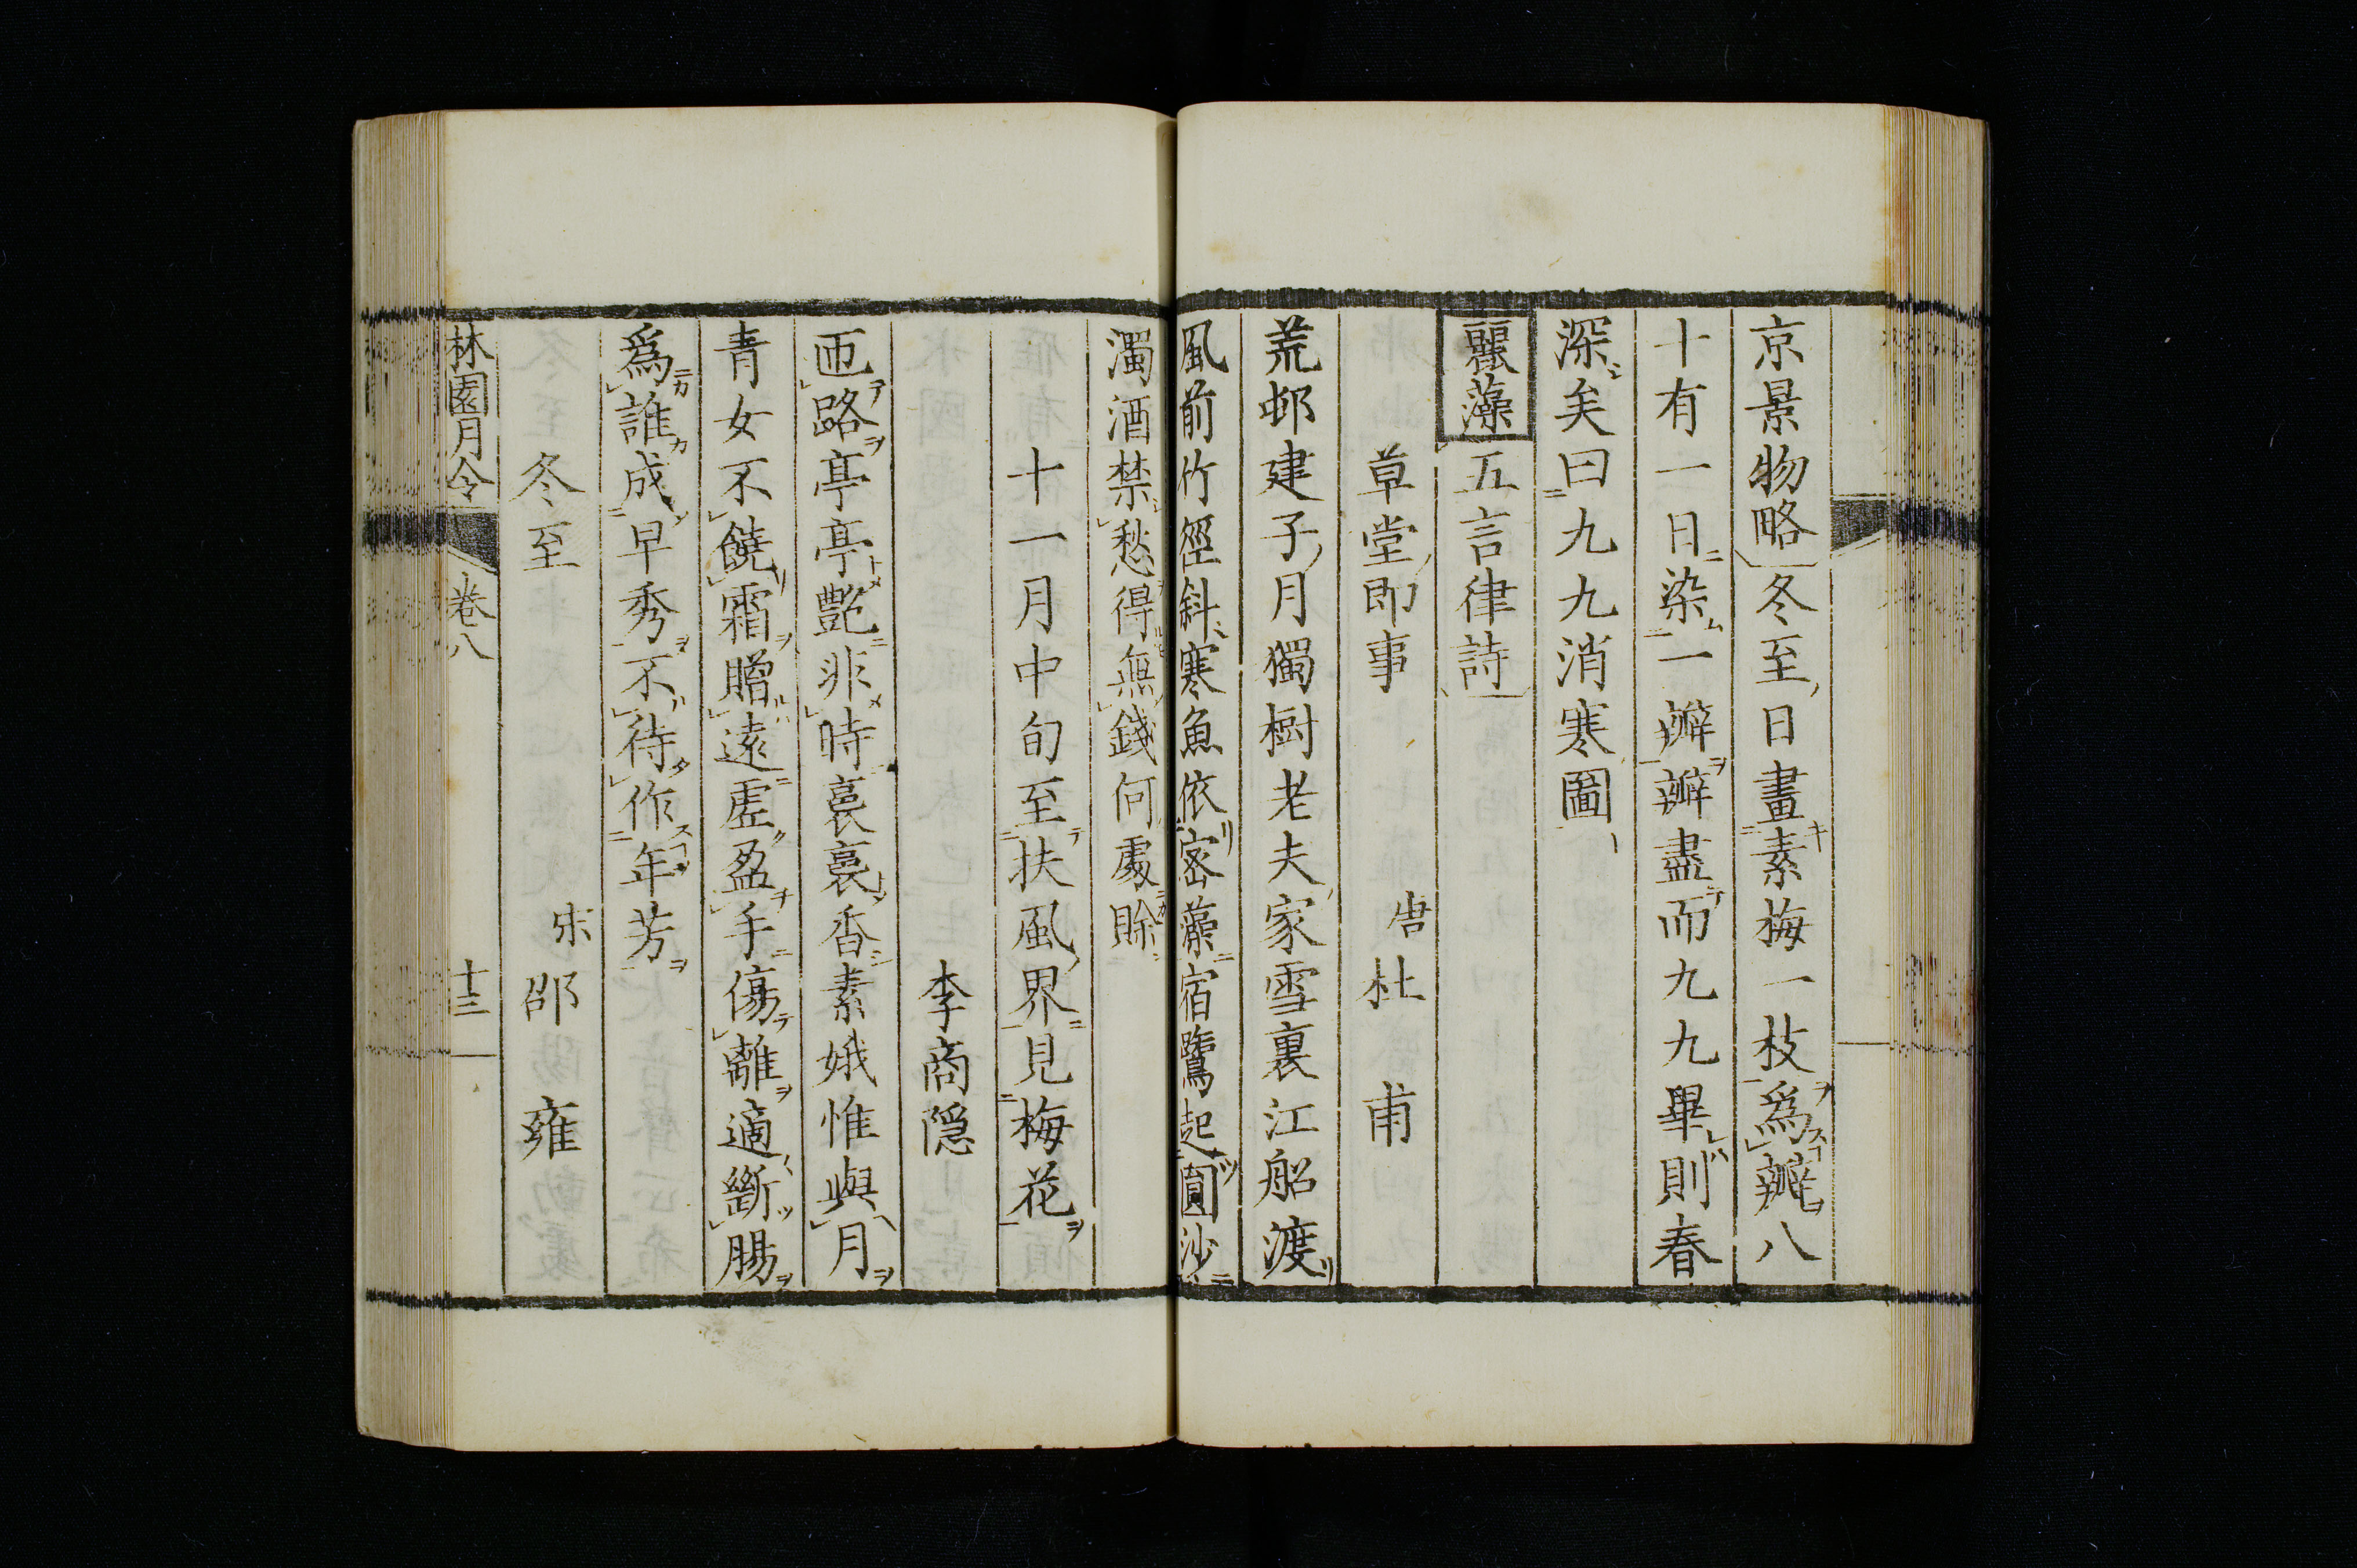 京景物略冬至日畫素梅一枝爲瓣八
十有一日染一瓣瓣盡而九九畢則春
深矣曰九九消寒圖
麗藻五言律詩
草堂即事　唐杜甫
荒邨建子月獨樹老夫家雪裏江船渡
風前竹徑斜寒魚依密藻宿鷺起圓沙
濁酒禁愁得無錢何處賒
十一月中旬至扶風界見梅花
李商隱
匝路亭亭艷非時裛裛香素娥惟與月
青女不饒霜贈遠虛盈手傷離適斷腸
爲誰成早秀不待作年芳
冬至　宋邵雍
林園月令　卷八　十三